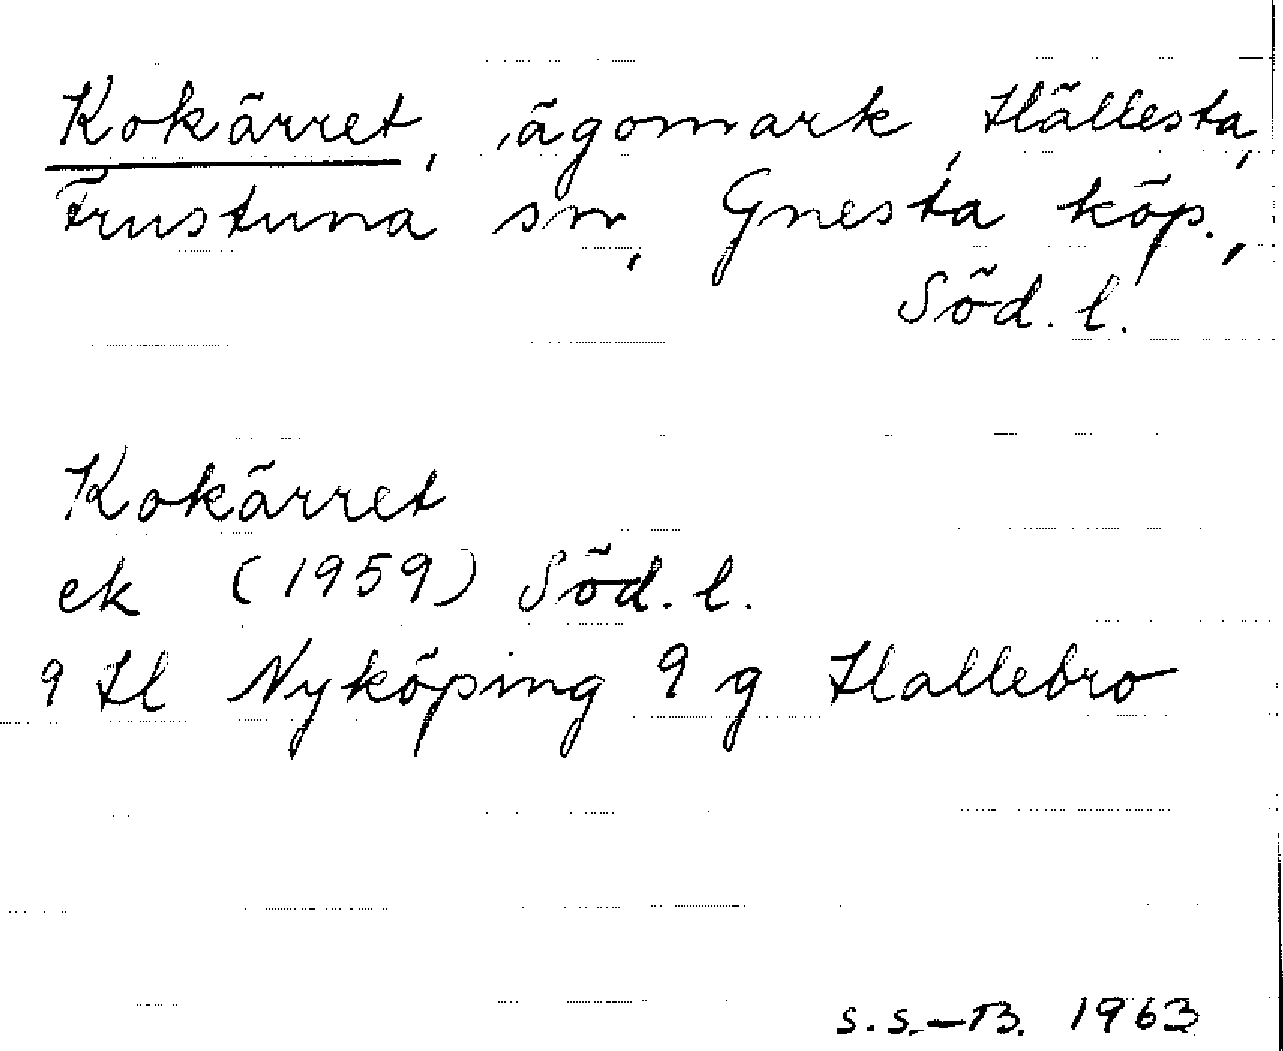 Kokärret, ägomark, Hällesta,
Frustuna sn, Gnesta köp.,
Söd. l.
Kokärret
ek (1959) Söd. l.
9 H Nyköping 9 g Hallebro
S.S.–B. 1963